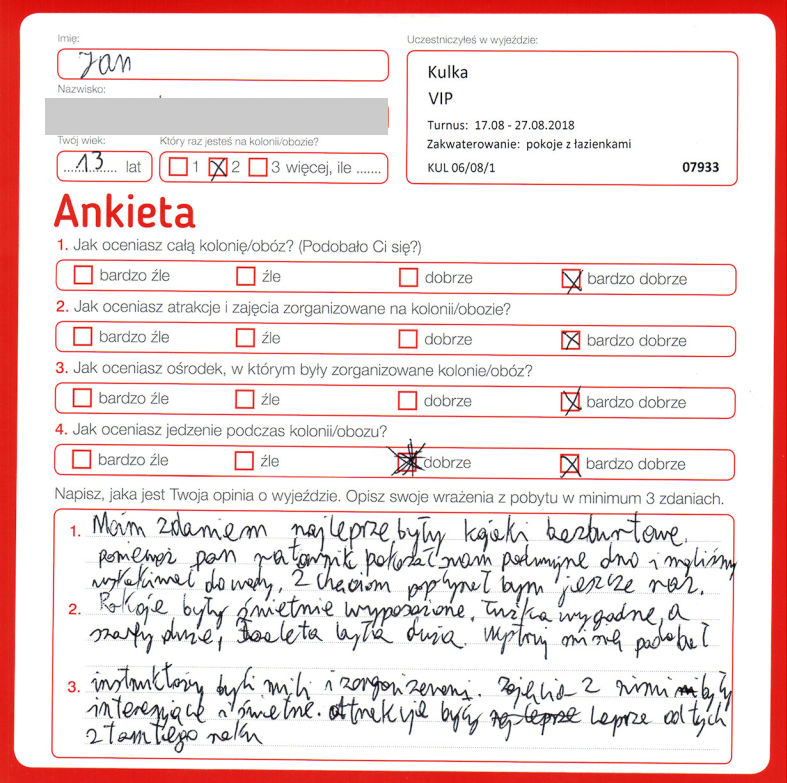 Imię:
Uczestniczyłeś w wyjeździe:
Jan
Kulka
VIP
Nazwisko:
Turnus: 17.08 - 27.08.2018
Twój wiek:
Który raz jesteś na kolonii/obozie?
Zakwaterowanie: pokoje z łazienkami
13 lat
1 2 3 więcej, ile .......
KUL 06/08/1
07933
Ankieta
1. Jak oceniasz całą kolonię/obóz? (Podobało Ci się?)
bardzo źle źle dobrze bardzo dobrze
2. Jak oceniasz atrakcje i zajęcia zorganizowane na kolonii/obozie?
bardzo źle źle dobrze bardzo dobrze
3. Jak oceniasz ośrodek, w którym były zorganizowane kolonie/obóz?
bardzo źle źle dobrze bardzo dobrze
4. Jak oceniasz jedzenie podczas kolonii/obozu?
bardzo źle źle dobrze bardzo dobrze
Napisz, jaka jest Twoja opinia o wyjeździe. Opisz swoje wrażenia z pobytu w minimum 3 zdaniach.
1. Moim zdaniem najleprze były kajaki bezburtowe,
poniewaz pan ratownik pokazał nam podwujne dno i
do wody. Z chęciom popłyneł bym jeszcze raz.
2. Pokoje były świetnie wyposażone. Łużka wygodne, a
szafy duże, toaleta była duża. Wystruj mi się podobał
3. instruktorzy byli mili i zorganizowani. Zajęcia z nimi były
interesujące i świetne. Atrakcje były leprze od tych
z tamtego roku